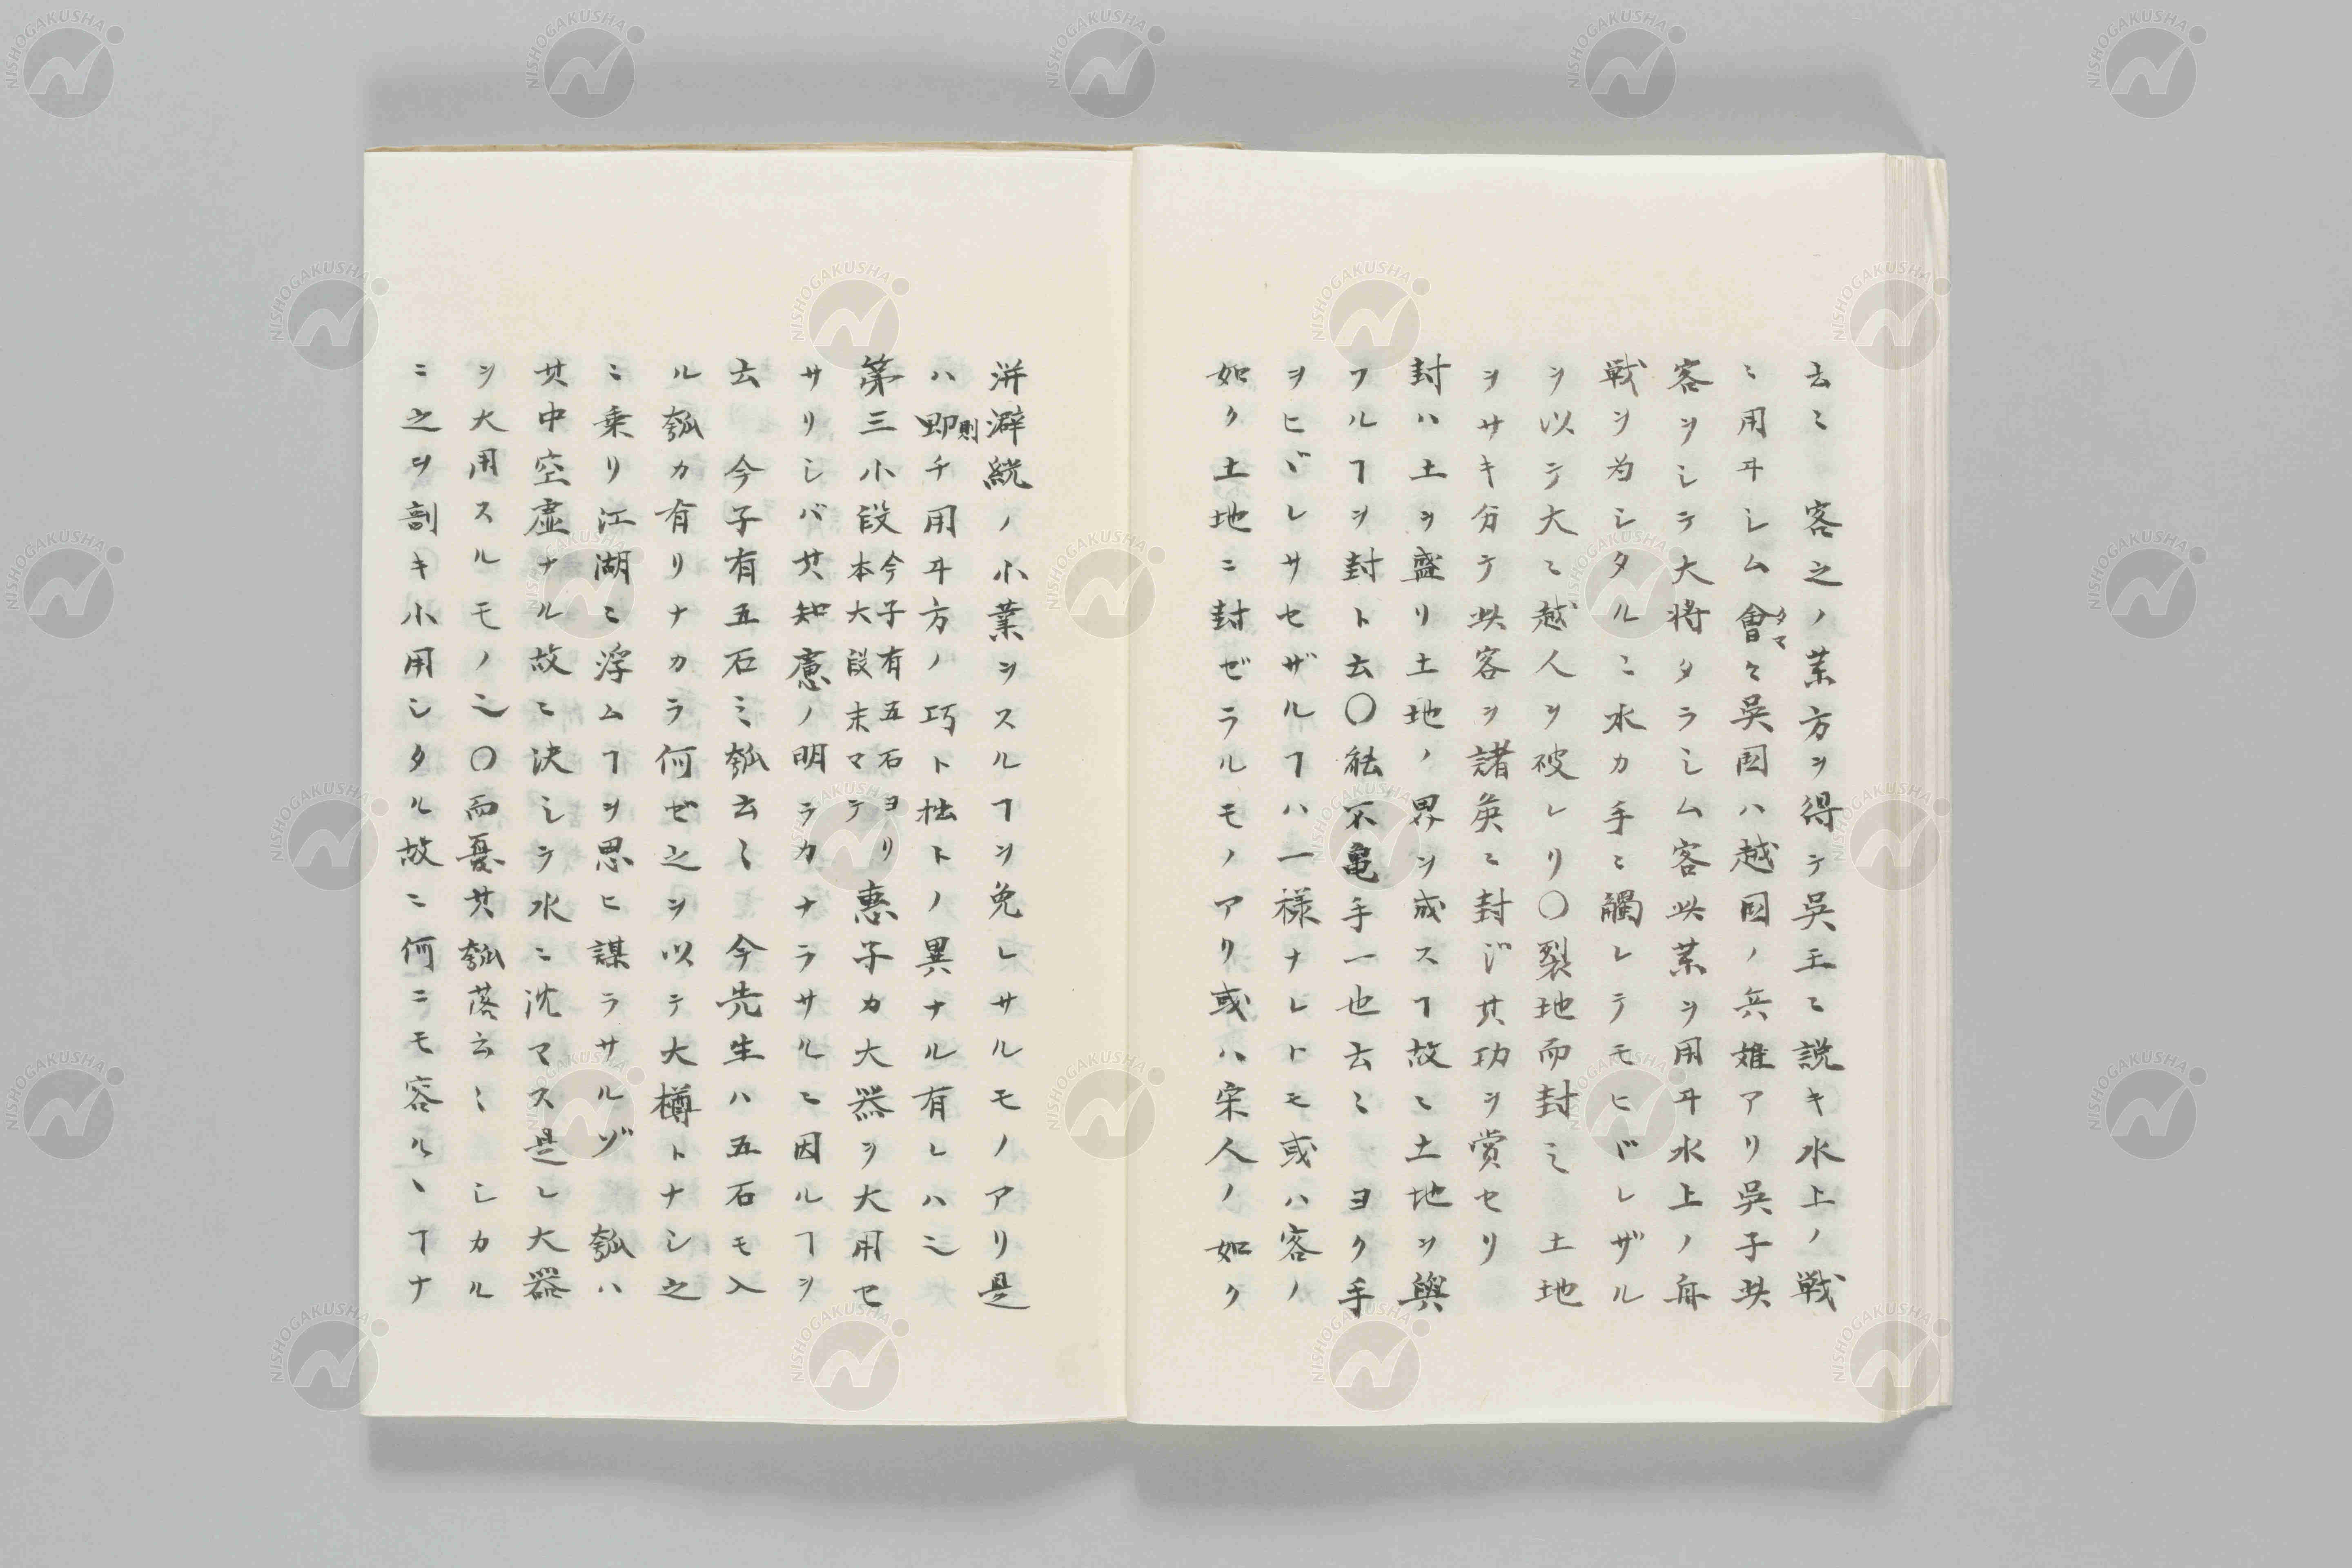 云〻　客之ノ藥方ヲ得テ吳王ニ説キ水上ノ戦
ニ用ヰシム會〻吳国ハ越国ノ兵難アリ吳子此
タマ
客ヲシテ大将タラシム客此藥ヲ用ヰ水上ノ舟
戦ヲ為シタルニ水カ手ニ觸レテモヒビレザル
ヲ以テ大ニ越人ヲ破レリ〇裂地而封之　土地
ヲサキ分テ此客ヲ諸矦ニ封ジ其功ヲ賞セリ
封ハ土ヲ盛リ土地ノ界ヲ成スヿ故ニ土地ヲ與
フルヿヲ封ト云〇能不亀手一也云〻　ヨク手
ヲヒビレサセザルヿハ一様ナレトモ或ハ客ノ
如ク土地ニ封ゼラルモノアリ或ハ宋人ノ如ク
洴澼絖ノ小業ヲスルヿヲ免レサルモノアリ是
ハ即チ用ヰ方ノ巧ト拙トノ異ナル有レハ之
則
第三小段今子有五石ヨリ本大段末マテ惠子カ大器ヲ大用セ
サリシバ其知慮ノ明ラカナラサルニ因ルヿヲ
云　今子有五石之瓠云〻　今先生ハ五石モ入
ル瓠カ有リナカラ何ゼ之ヲ以テ大樽トナシ之
ニ乗リ江湖ニ浮ムヿヲ思ヒ謀ラサルゾ　瓠ハ
其中空虚ナル故ニ決シテ水ニ沈マス是レ大器
ヲ大用スルモノ之〇而憂其瓠落云〻　シカル
ニ之ヲ剖キ小用シタル故ニ何ニモ容ルヽヿナ